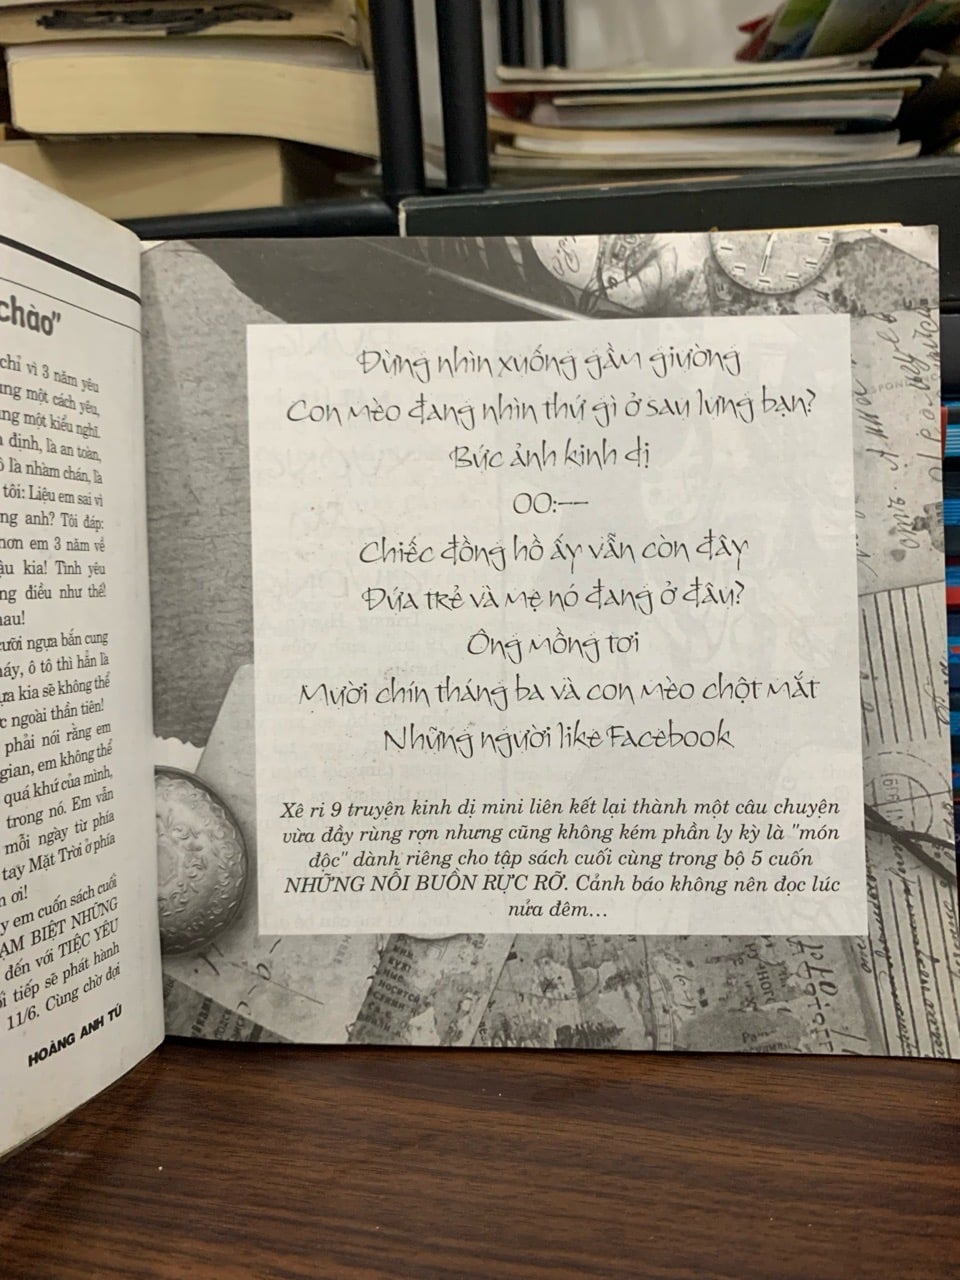 chào"
chỉ vì 3 năm yêu
một cách yêu,
một kiểu nghĩ.
định, là an toàn,
là nhàm chán, là
tôi: Liệu em sai vì
anh? Tôi đáp:
hơn em 3 năm về
kia! Tình yêu
điều như thế!
nhau!
cưỡi ngựa bắn cung
máy, ô tô thì hẳn là
kia sẽ không thể
ngoài thần tiên!
phải nói rằng em
gian, em không thể
quá khứ của mình,
trong nó. Em vẫn
mỗi ngày từ phía
tay Mặt Trời ở phía
ơi!
em cuốn sách cuối
TẠM BIỆT NHỮNG
đến với TIỆC YÊU
tiếp sẽ phát hành
11/6. Cùng chờ đợi
HOÀNG ANH TÚ
Đừng nhìn xuống gầm giường
Con mèo đang nhìn thứ gì ở sau lưng bạn?
Bức ảnh kinh dị
00:--
Chiếc đồng hồ ấy vẫn còn đây
Đứa trẻ và mẹ nó đang ở đâu?
Ông mồng tơi
Mười chín tháng ba và con mèo chột mắt
Những người like Facebook
Xê ri 9 truyện kinh dị mini liên kết lại thành một câu chuyện
vừa đầy rùng rợn nhưng cũng không kém phần ly kỳ là "món
độc" dành riêng cho tập sách cuối cùng trong bộ 5 cuốn
NHỮNG NỖI BUỒN RỰC RỠ. Cảnh báo không nên đọc lúc
nửa đêm...